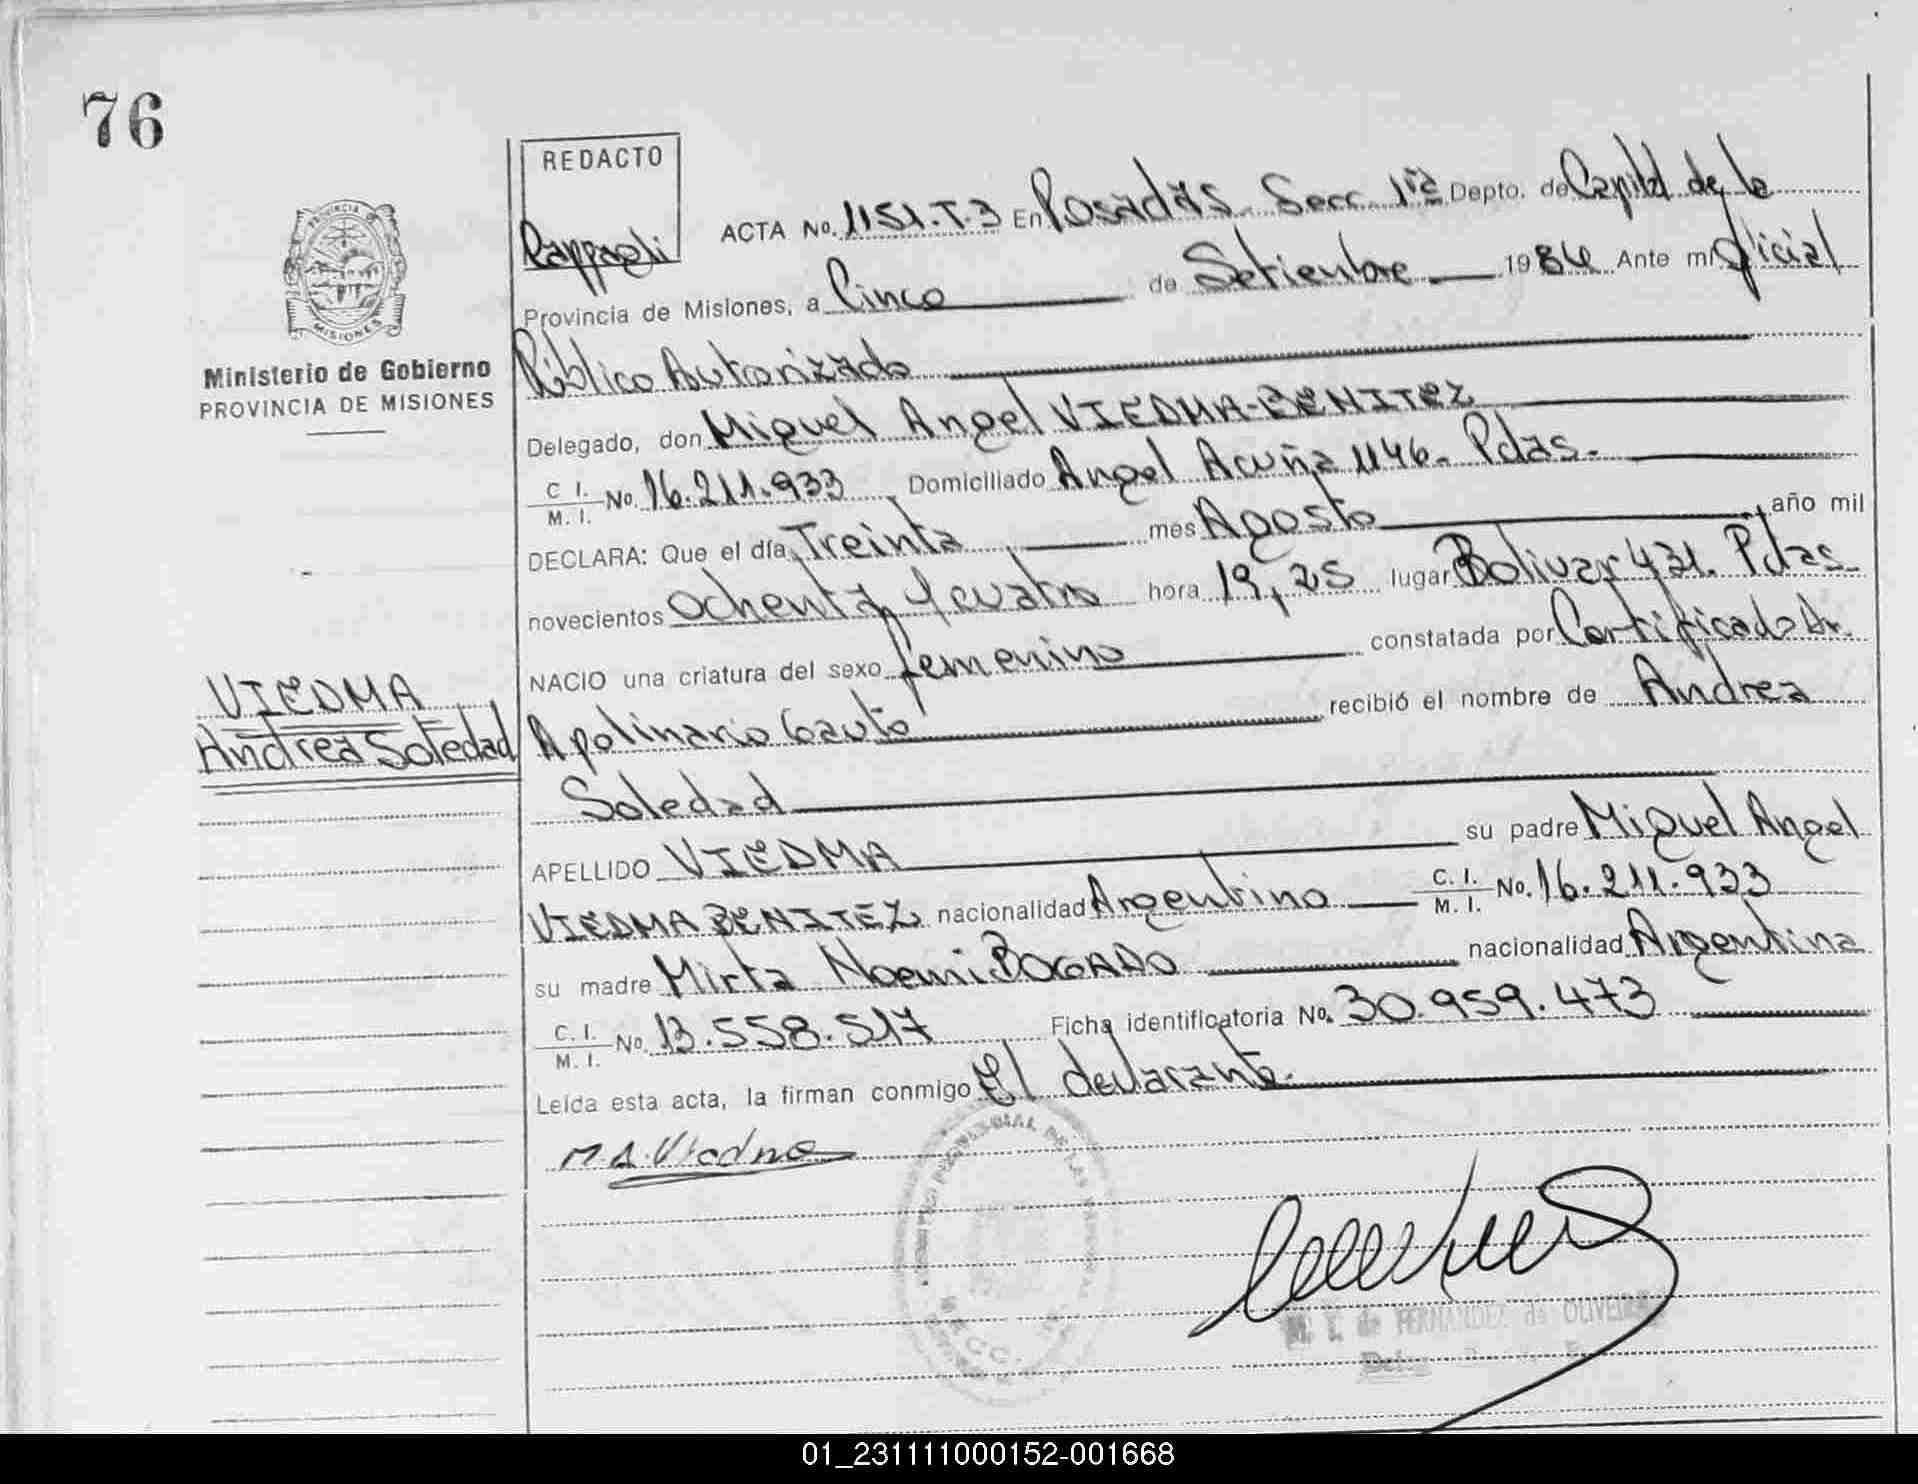 76
REDACTO
Rappagli
ACTA No. 1151.T.3 En Posadas. Secc. 1ra Depto. de Capital de la
Provincia de Misiones, a Cinco de Setiembre 1984 Ante mi Oficial
Público Autorizado
Delegado, don Miguel Angel VIEDMA-BENITEZ
C. I. M. I. No. 16.211.933 Domiciliado Angel Acuña 1146. Pdas.
DECLARA: Que el día Treinta mes Agosto año mil
novecientos Ochenta y cuatro hora 19,25 lugar Bolivar 431. Pdas.
NACIO una criatura del sexo femenino constatada por Certificado Dr.
Apolinario Gauto recibió el nombre de Andrea
Soledad
APELLIDO VIEDMA su padre Miguel Angel
VIEDMA BENITEZ nacionalidad Argentino C. I. M. I. No. 16.211.933
su madre Mirta Noemi BOGADO nacionalidad Argentina
C. I. M. I. No. 13.558.517 Ficha identificatoria No. 30.959.473
Leída esta acta, la firman conmigo El declarante.
M.A.Viedma
PROVINCIA DE
MISIONES
Ministerio de Gobierno
PROVINCIA DE MISIONES
VIEDMA
Andrea Soledad
PROVINCIAL DE LAS PERSONAS
SECC.
M. T. de FERNANDEZ de OLIVEIRA
01_231111000152-001668